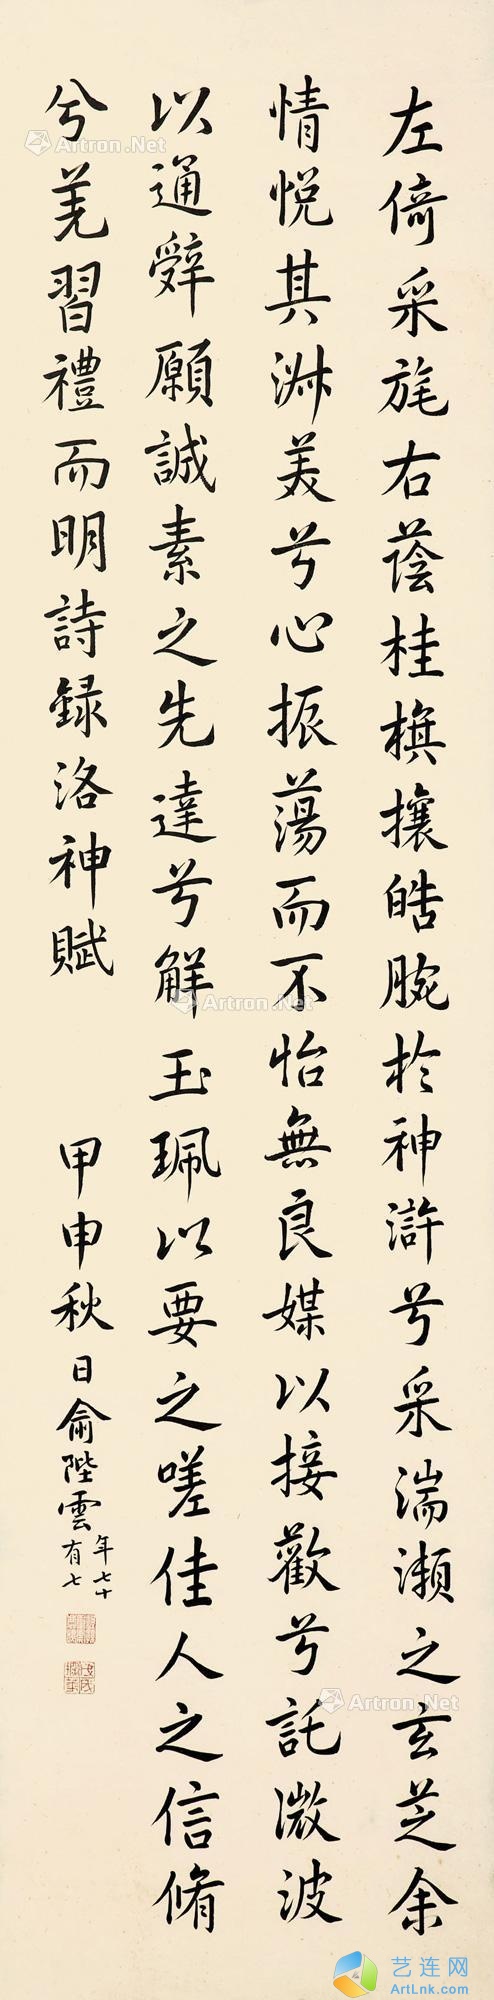 左倚采旄右蔭桂旗攘皓腕於神滸兮采湍瀨之玄芝余
情悅其淑美兮心振蕩而不怡無良媒以接歡兮託微波
以通辭願誠素之先達兮解玉珮以要之嗟佳人之信脩
兮羌習禮而明詩錄洛神賦
甲申秋日俞陛雲年七十
有七
Artron.Net
Artron.Net
Artron.Net
Artron.Net
Artron.Net
Artron.Net
艺连网
ArtLnk.com